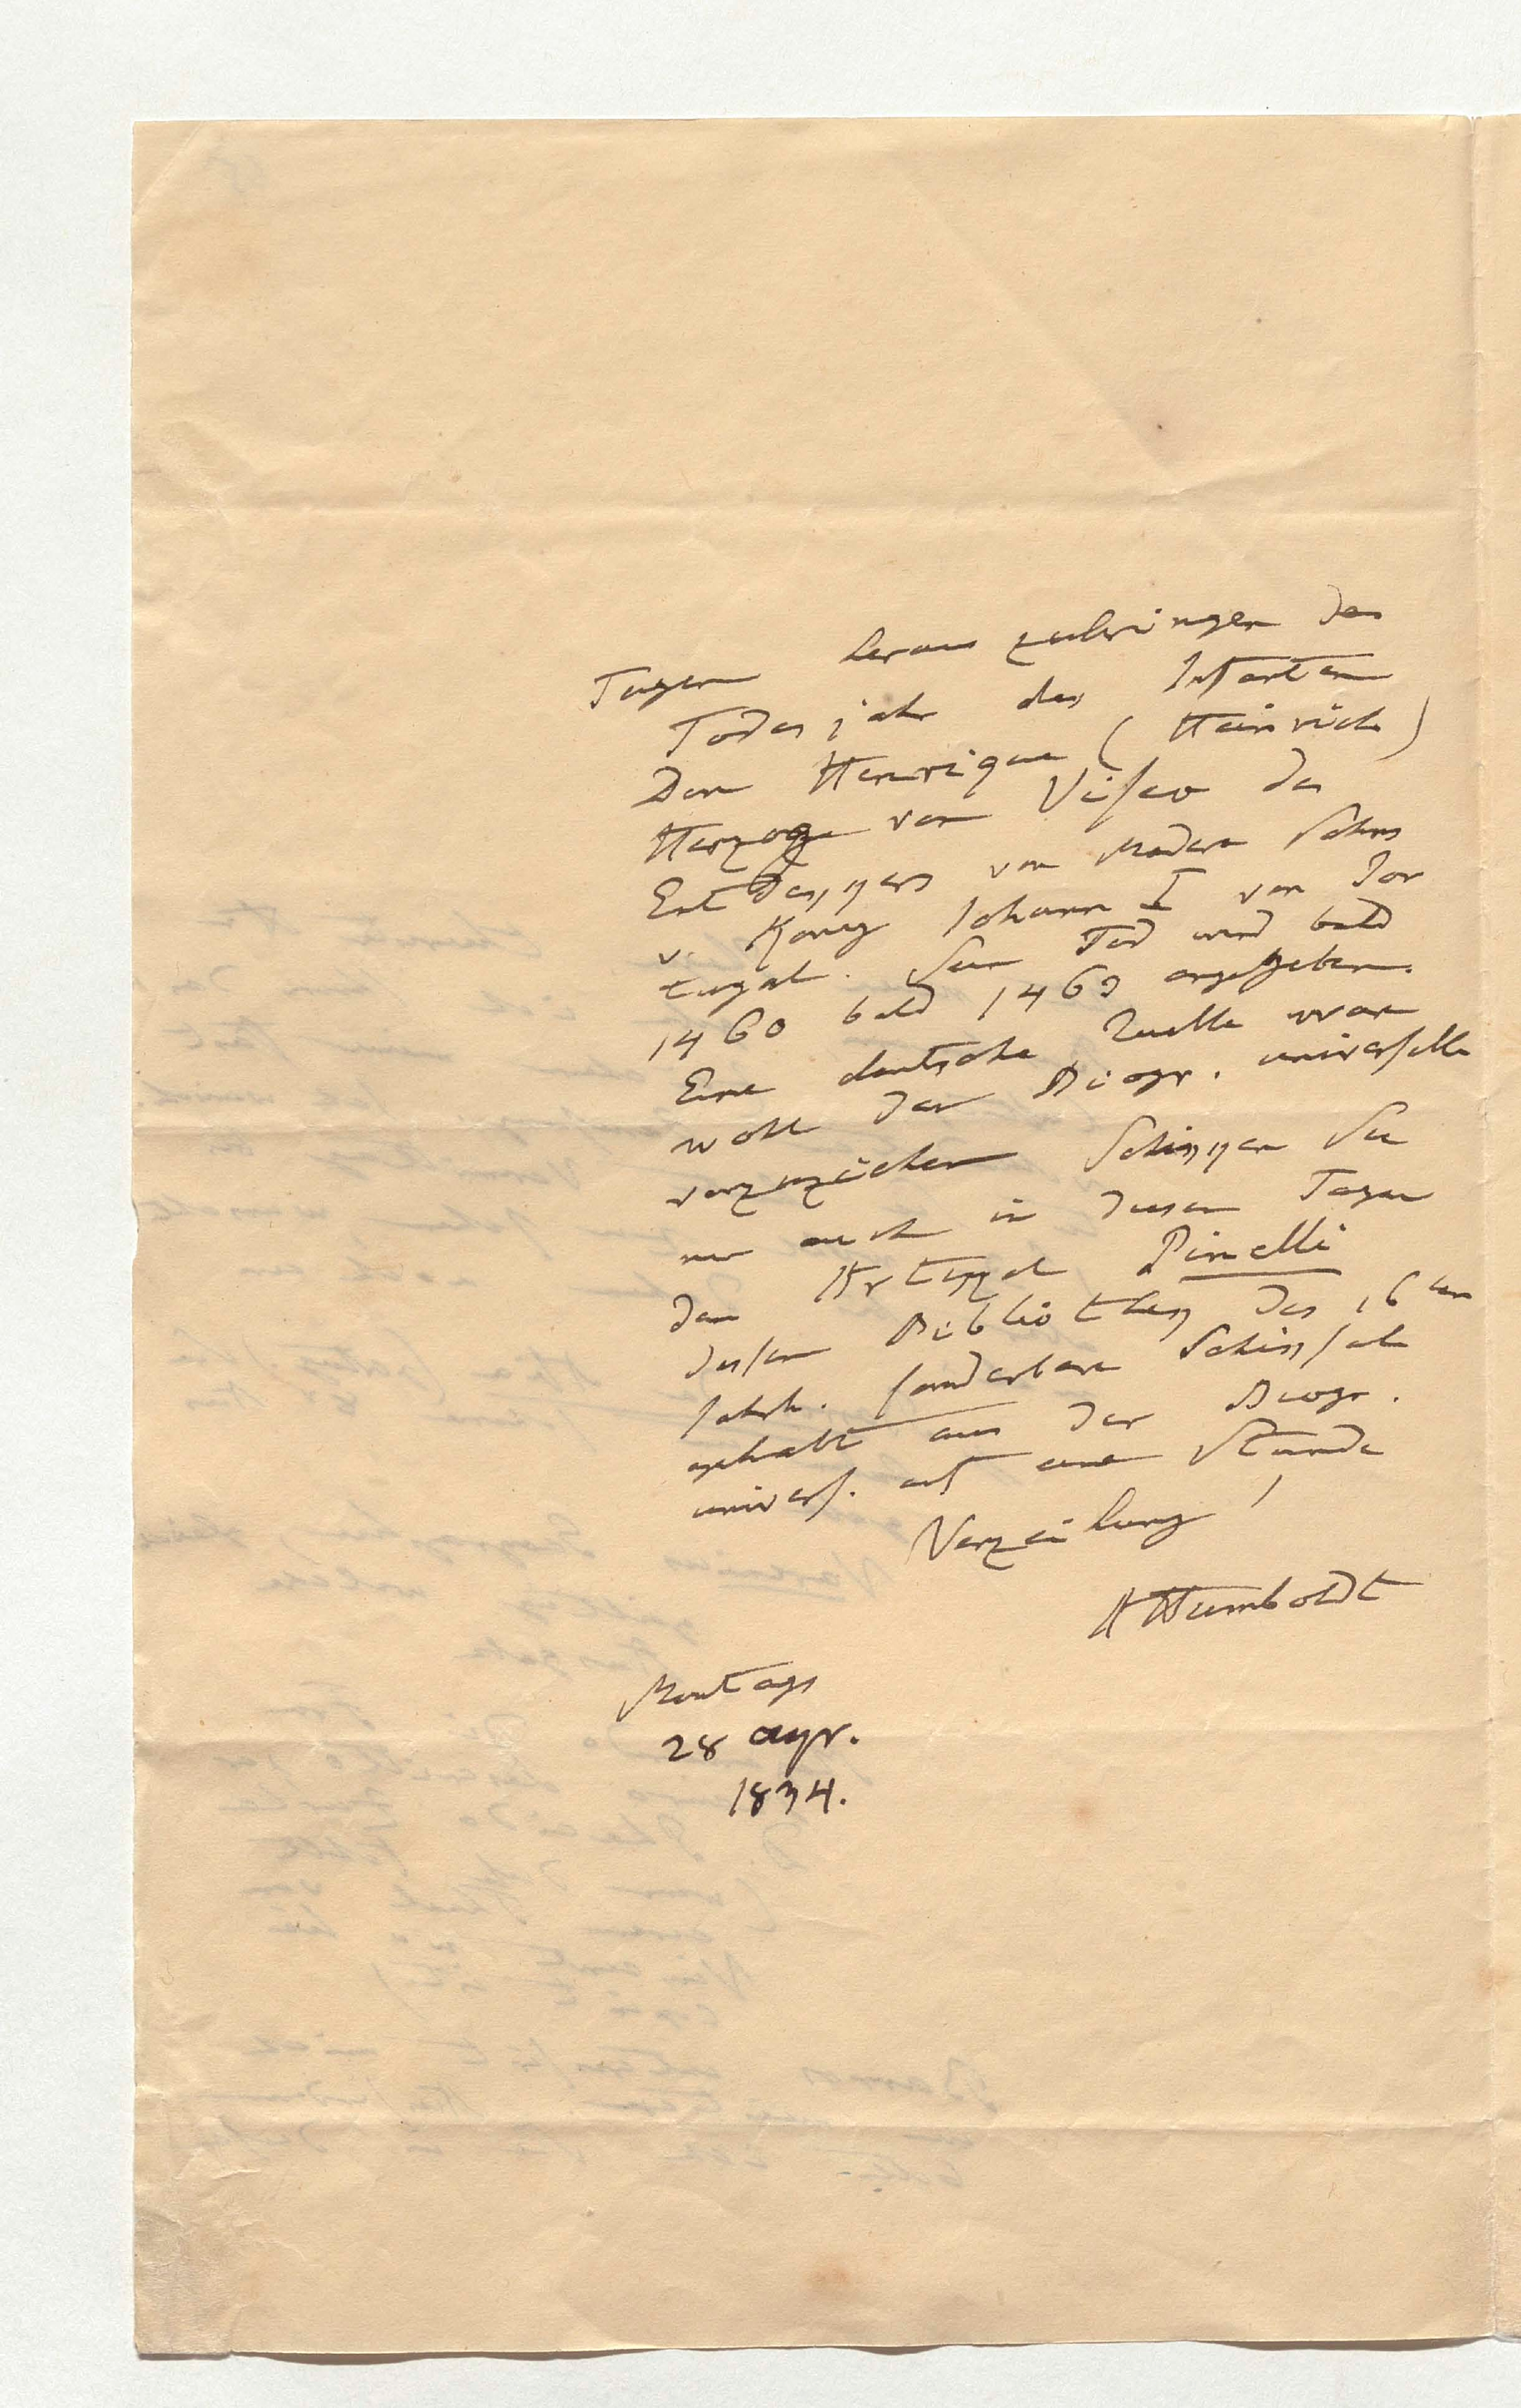 Tagen heraus zubringen das
Todesjahr des Infanten
Don Henrique (Heinrich)
Herzogs von Viseo des
Entdekkers von Madera Sohns
v. König Johann I von Por
tugal. Sein Tod wird bald
1460 bald 1463 angegeben.
Eine deutsche Quelle wäre
wohl der Biogr. universelle
vorzuziehen Schikken Sie
mir auch in diesen Tagen
den Artikkel Pinelli
dessen Bibliothek des 16ten
Jahrh. sonderbare Schiksale
gehabt aus der Biogr.
univers. auf eine Stunde
Verzeihung!
AHumboldt
Montags
28 apr.
1834.